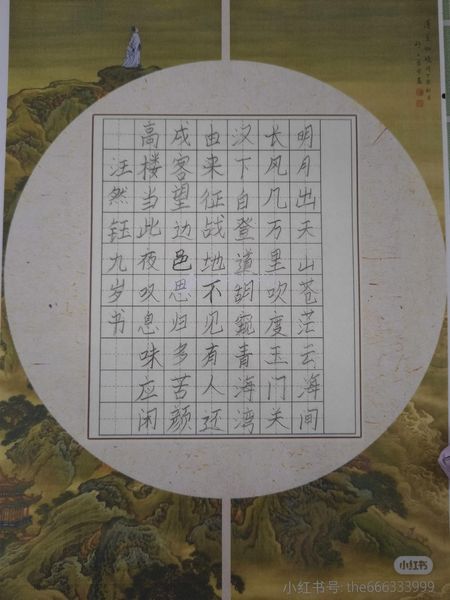 明月出天山苍茫云海间
长风几万里吹度玉门关
汉下自登道胡窥青海湾
由来征战地不见有人还
戍客望边邑思归多苦颜
高楼当此夜叹息味应闲
汪然钰九岁书
小红书
小红书号: the666333999